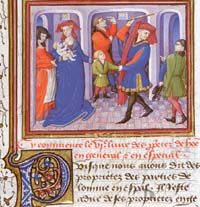 Cy commence le vi.e livre des p̃prietez de hõe
en general & en especial
Puisque nous auons dit des
proprietez des parties de
lomme en especial Il reste
a dire des ses proprietez en ge